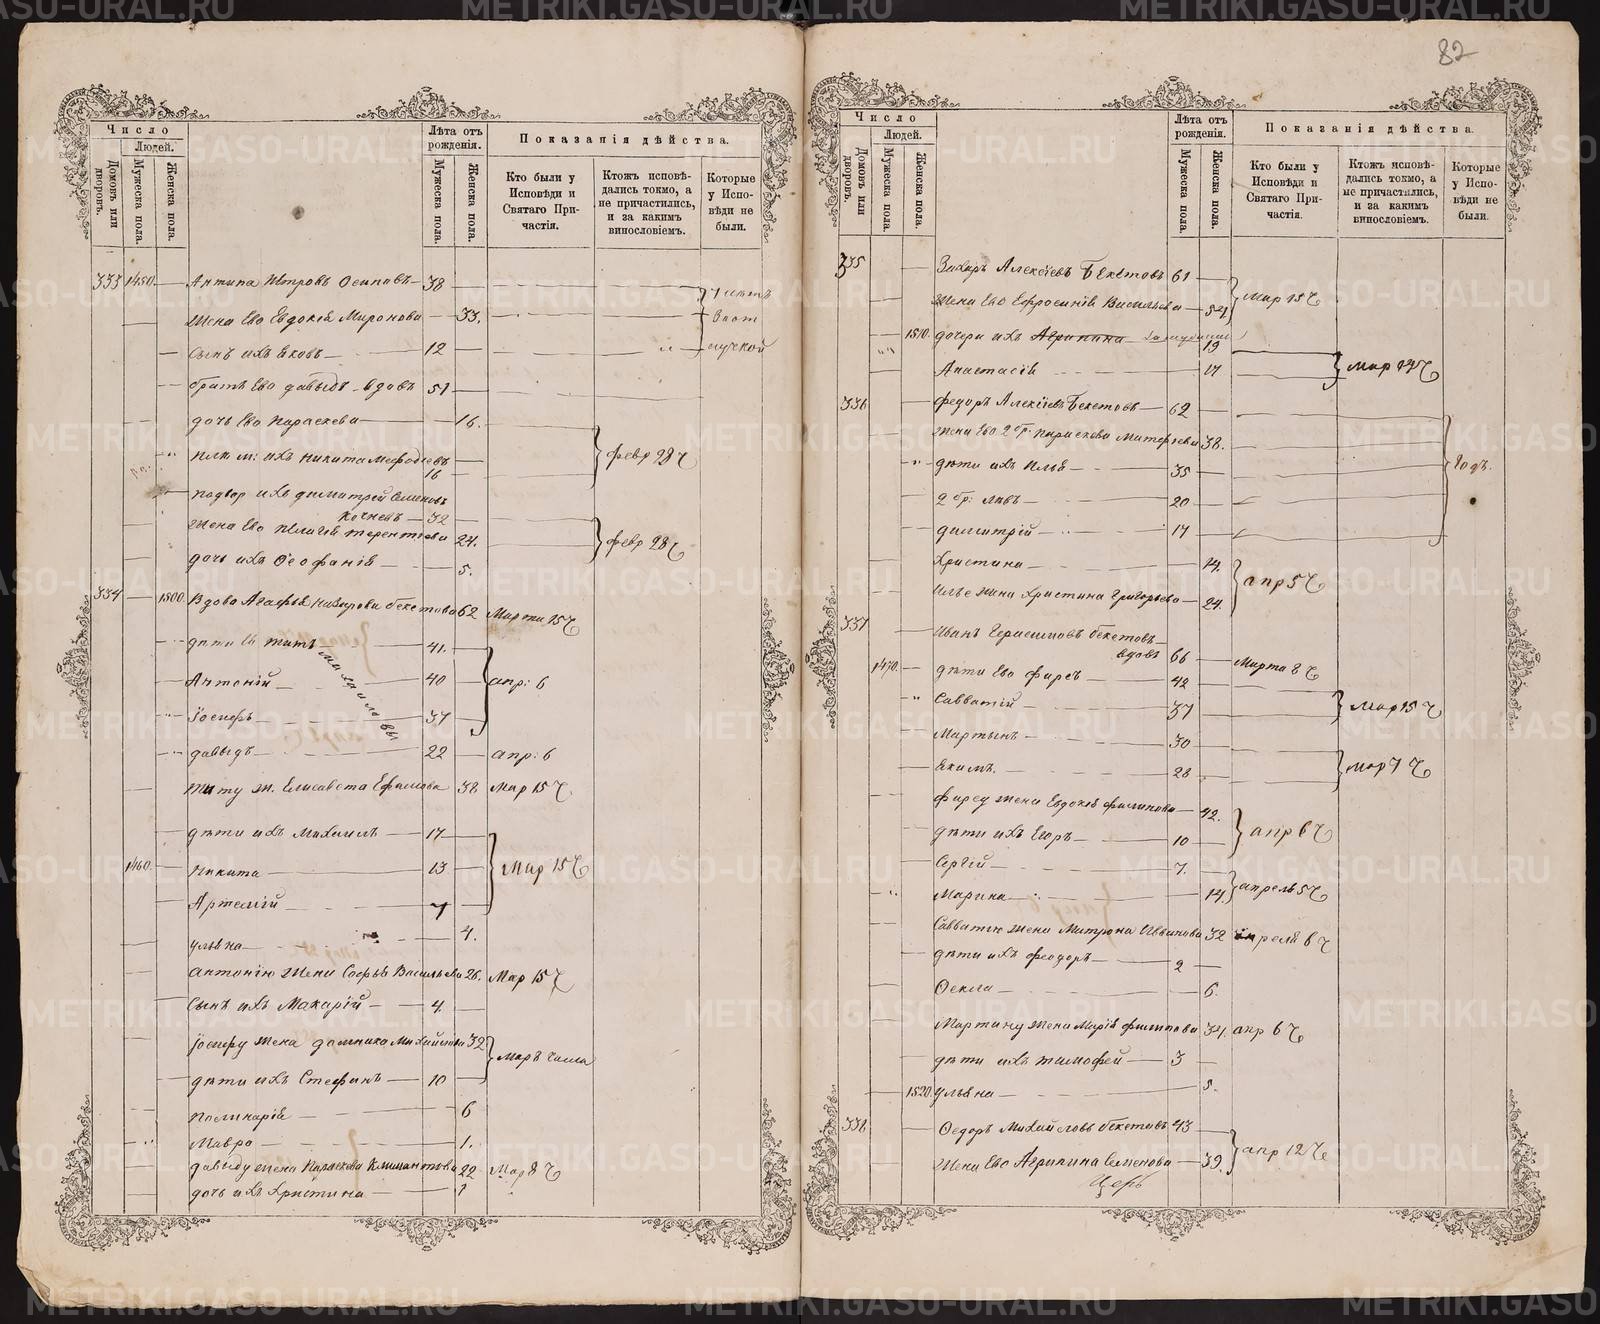 82
Число
Людей.
Домовъ или дворовъ.
Мужеска пола.
Женска пола.
Лѣта отъ рожденія.
Мужеска пола.
Женска пола.
Показанія дѣйства.
Кто были у Исповѣди и Святаго Причастія.
Ктожъ исповѣдались токмо, а не причастились, и за какимъ винословіемъ.
Которые у Исповѣди не были.
333 1450 Антипа Петровъ Осиповъ 38
Жена Ево Евдокія Миронова 33.
Сынъ ихъ Яковъ 12
братъ Ево давыдъ вдовъ 51
дочь Ево Параскева 16.
Никита Мефодіевъ 16
февр 28 Ч
подвор ихъ димитрій Семеновъ
Кочневъ 32
Жена Ево Пелагія терентіева 24.
февр 28 Ч
дочь ихъ Ѳеофанія 5.
334 1500 Вдова Агафья Назарова бекетова 62 Марта 15 Ч
дѣти Ея титъ 41.
Михаиловы
Антоній 40 апр: 6
Іосифъ 37
давыдъ 22 апр: 6
титу ж. Елисавета Ефимова 38 Мар 15 Ч
дѣти ихъ Михаилъ 17
1460 Никита 13 Мар 15 Ч
Артемій 7
ульяна 4.
антонію жена Софья Васильева 26. Мар 15 Ч
Сынъ ихъ Макарій 4
Іосифу жена домника Михайлова 32
дѣти ихъ Стефанъ 10
Полинарія 6
Мавра 1.
давыду жена Параскева Климантова 22 Мар 8 Ч
дочь ихъ христина 1
Число
Людей.
Домовъ или дворовъ.
Мужеска пола.
Женска пола.
Лѣта отъ рожденія.
Мужеска пола.
Женска пола.
Показанія дѣйства.
Кто были у Исповѣди и Святаго Причастія.
Ктожъ исповѣдались токмо, а не причастились, и за какимъ винословіемъ.
Которые у Исповѣди не были.
335 Захаръ Алексіевъ Бекетовъ 61
Мар 15 Ч
Жена Ево Ефросинія Васильева 54
1510. дочери ихъ Агрипина 19
Анастасія 17
федоръ Алексіевъ Бекетовъ 62
336
Жена Ево 2 бр: параскева Матфіева 38.
дѣти ихъ Илья 35
2 бр: Левъ 20
димитрій 17
Христина 14.
апр 5 Ч
Илье жена Христина Григорьева 24.
337 Иванъ Герасимовъ бекетовъ
вдовъ 66 Марта 8 Ч
1470. дѣти Ево фирсъ 42
Савватій 37
Мар 15 Ч
Мартынъ 30
Екимъ. 28
мар 7 Ч
фирсу жена Евдокія филипова 42.
апр 6 Ч
дѣти ихъ Егоръ 10
Сергій 7.
апрель 5 Ч
Марина 14.
Савватію жена Митрона Иванова 32 апреля 6 Ч
дѣти ихъ феодоръ 2
Ѳекла 6.
Мартину жена Марія филипова 34. апр 6 Ч
дѣти ихъ тимофей 3
1520. ульяна 5.
338 Ѳедоръ Михайловъ бекетовъ 43
апр 12 Ч
Жена Ево Агрипина Семенова 39.
Церь